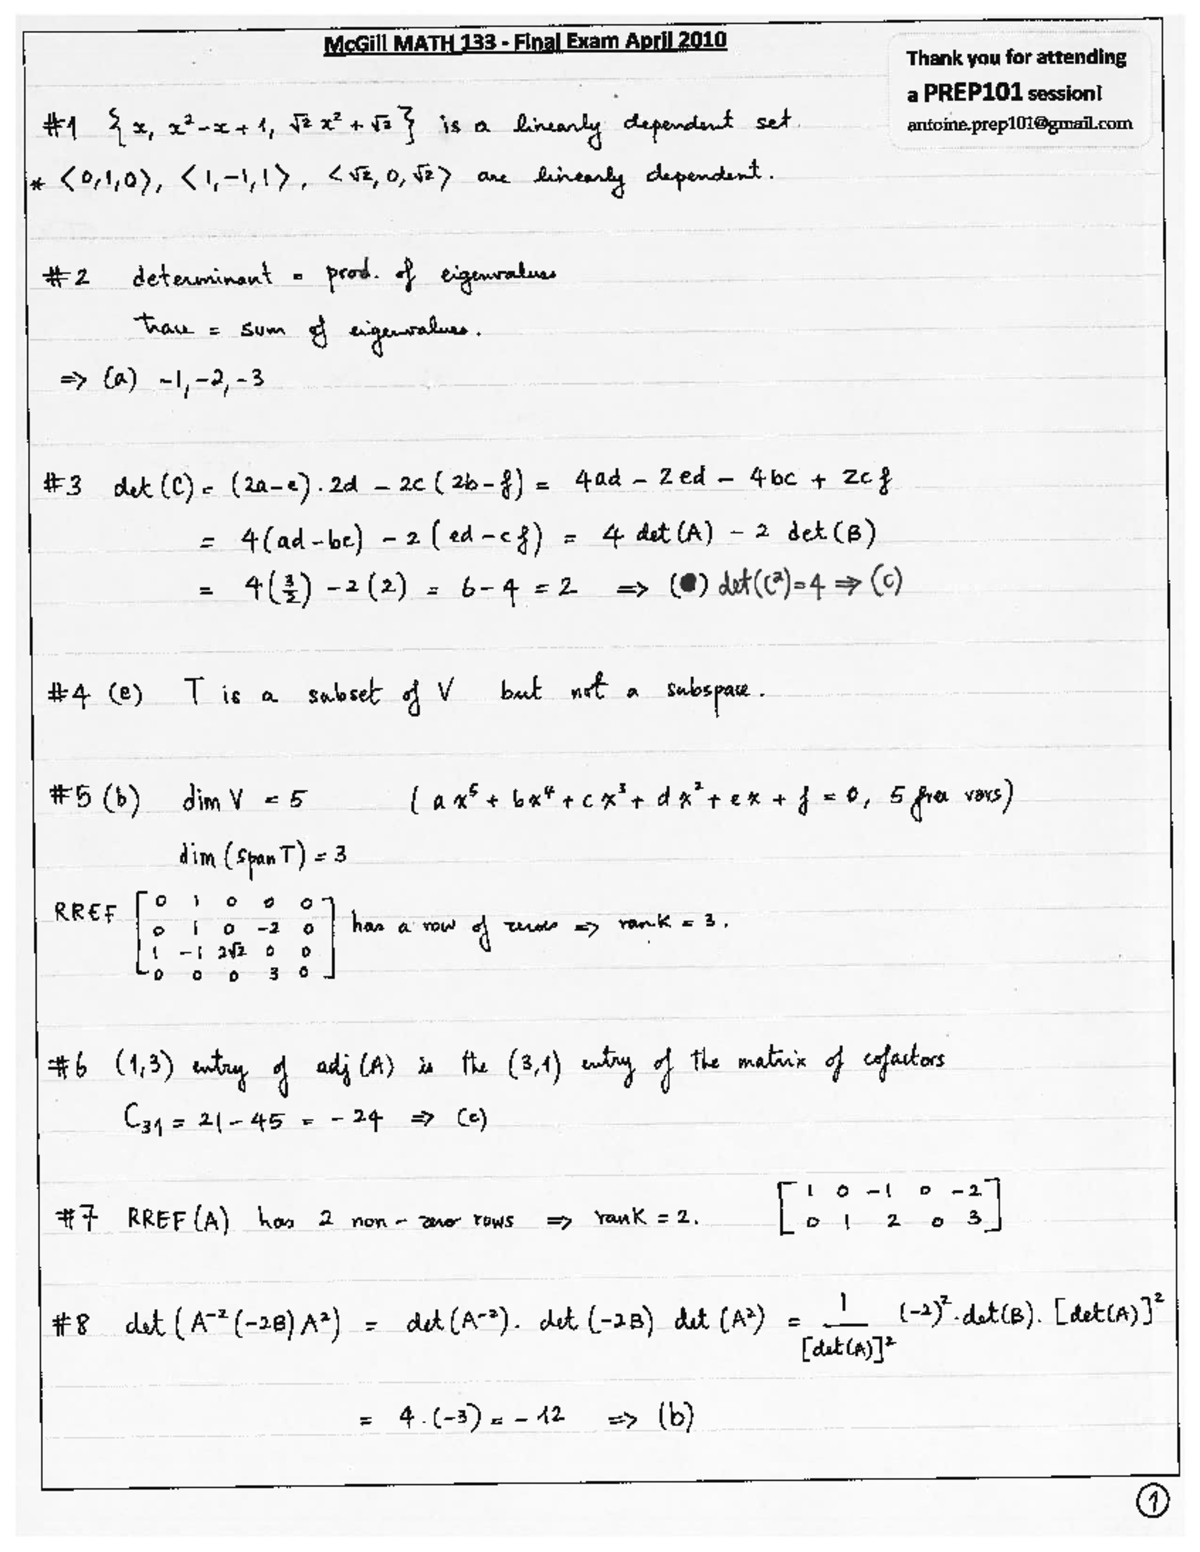 McGill MATH 133 - Final Exam April 2010
Thank you for attending
a PREP101 session!
antoine.prep101@gmail.com
#1 {x, x²-x+1, √2 x²+√2} is a linearly dependent set.
* <0,1,0), <1,-1,1>, <√2, 0, √2> are linearly dependent.
#2 determinant = prod. of eigenvalues
trace = sum of eigenvalues.
⇒ (a) -1, -2, -3
#3 det(C) = (2a-e)·2d - 2c(2b-f) = 4ad - 2ed - 4bc + 2cf
= 4(ad-bc) - 2(ed-cf) = 4 det(A) - 2 det(B)
= 4(3/2) - 2(2) = 6-4 = 2 ⇒ ( ) det(C²)=4 ⇒ (c)
#4 (e) T is a subset of V but not a subspace.
#5 (b) dim V = 5 (ax⁵ + bx⁴ + cx³ + dx² + ex + f = 0, 5 free vars)
dim(span T) = 3
RREF [0 1 0 0 0
0 1 0 -2 0
1 -1 2√2 0 0
0 0 0 3 0] has a row of zeros ⇒ rank = 3.
#6 (1,3) entry of adj(A) is the (3,1) entry of the matrix of cofactors
C₃₁ = 21 - 45 = -24 ⇒ (c)
#7 RREF(A) has 2 non-zero rows ⇒ rank = 2. [1 0 -1 0 -2
0 1 2 0 3]
#8 det(A⁻²(-2B)A²) = det(A⁻²). det(-2B) det(A²) = 1/[det(A)]² (-2)².det(B). [det(A)]²
= 4.(-3) = -12 ⇒ (b)
1